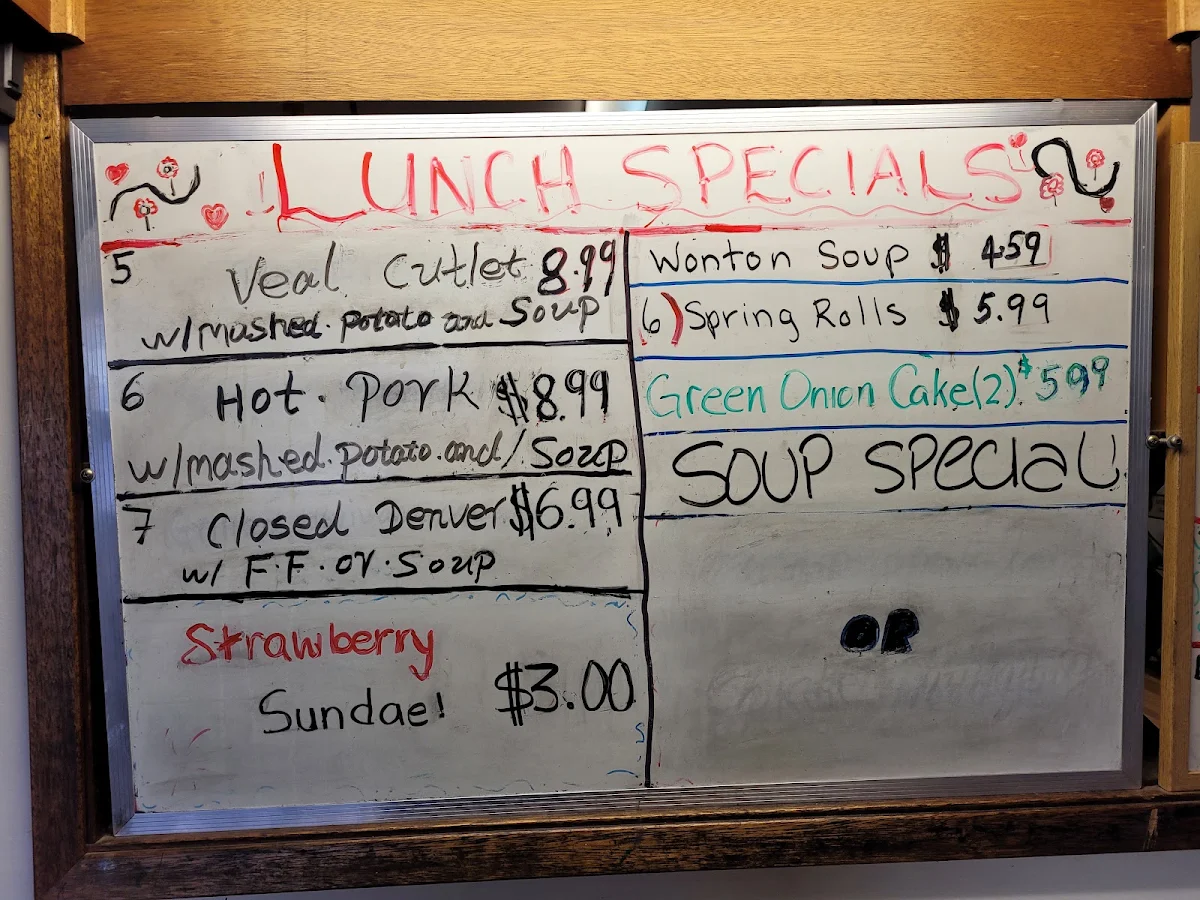 LUNCH SPECIALS
5 Veal Cutlet 8.99
w/mashed.potato and Soup
6 Hot. Pork $8.99
w/mashed.potato.and/Soup
7 Closed Denver $6.99
w/ F.F.or.Soup
Strawberry
Sundae! $3.00
Wonton Soup $ 4.59
6) Spring Rolls $ 5.99
Green Onion Cake(2) $5.99
SOUP SPECIAL
OR